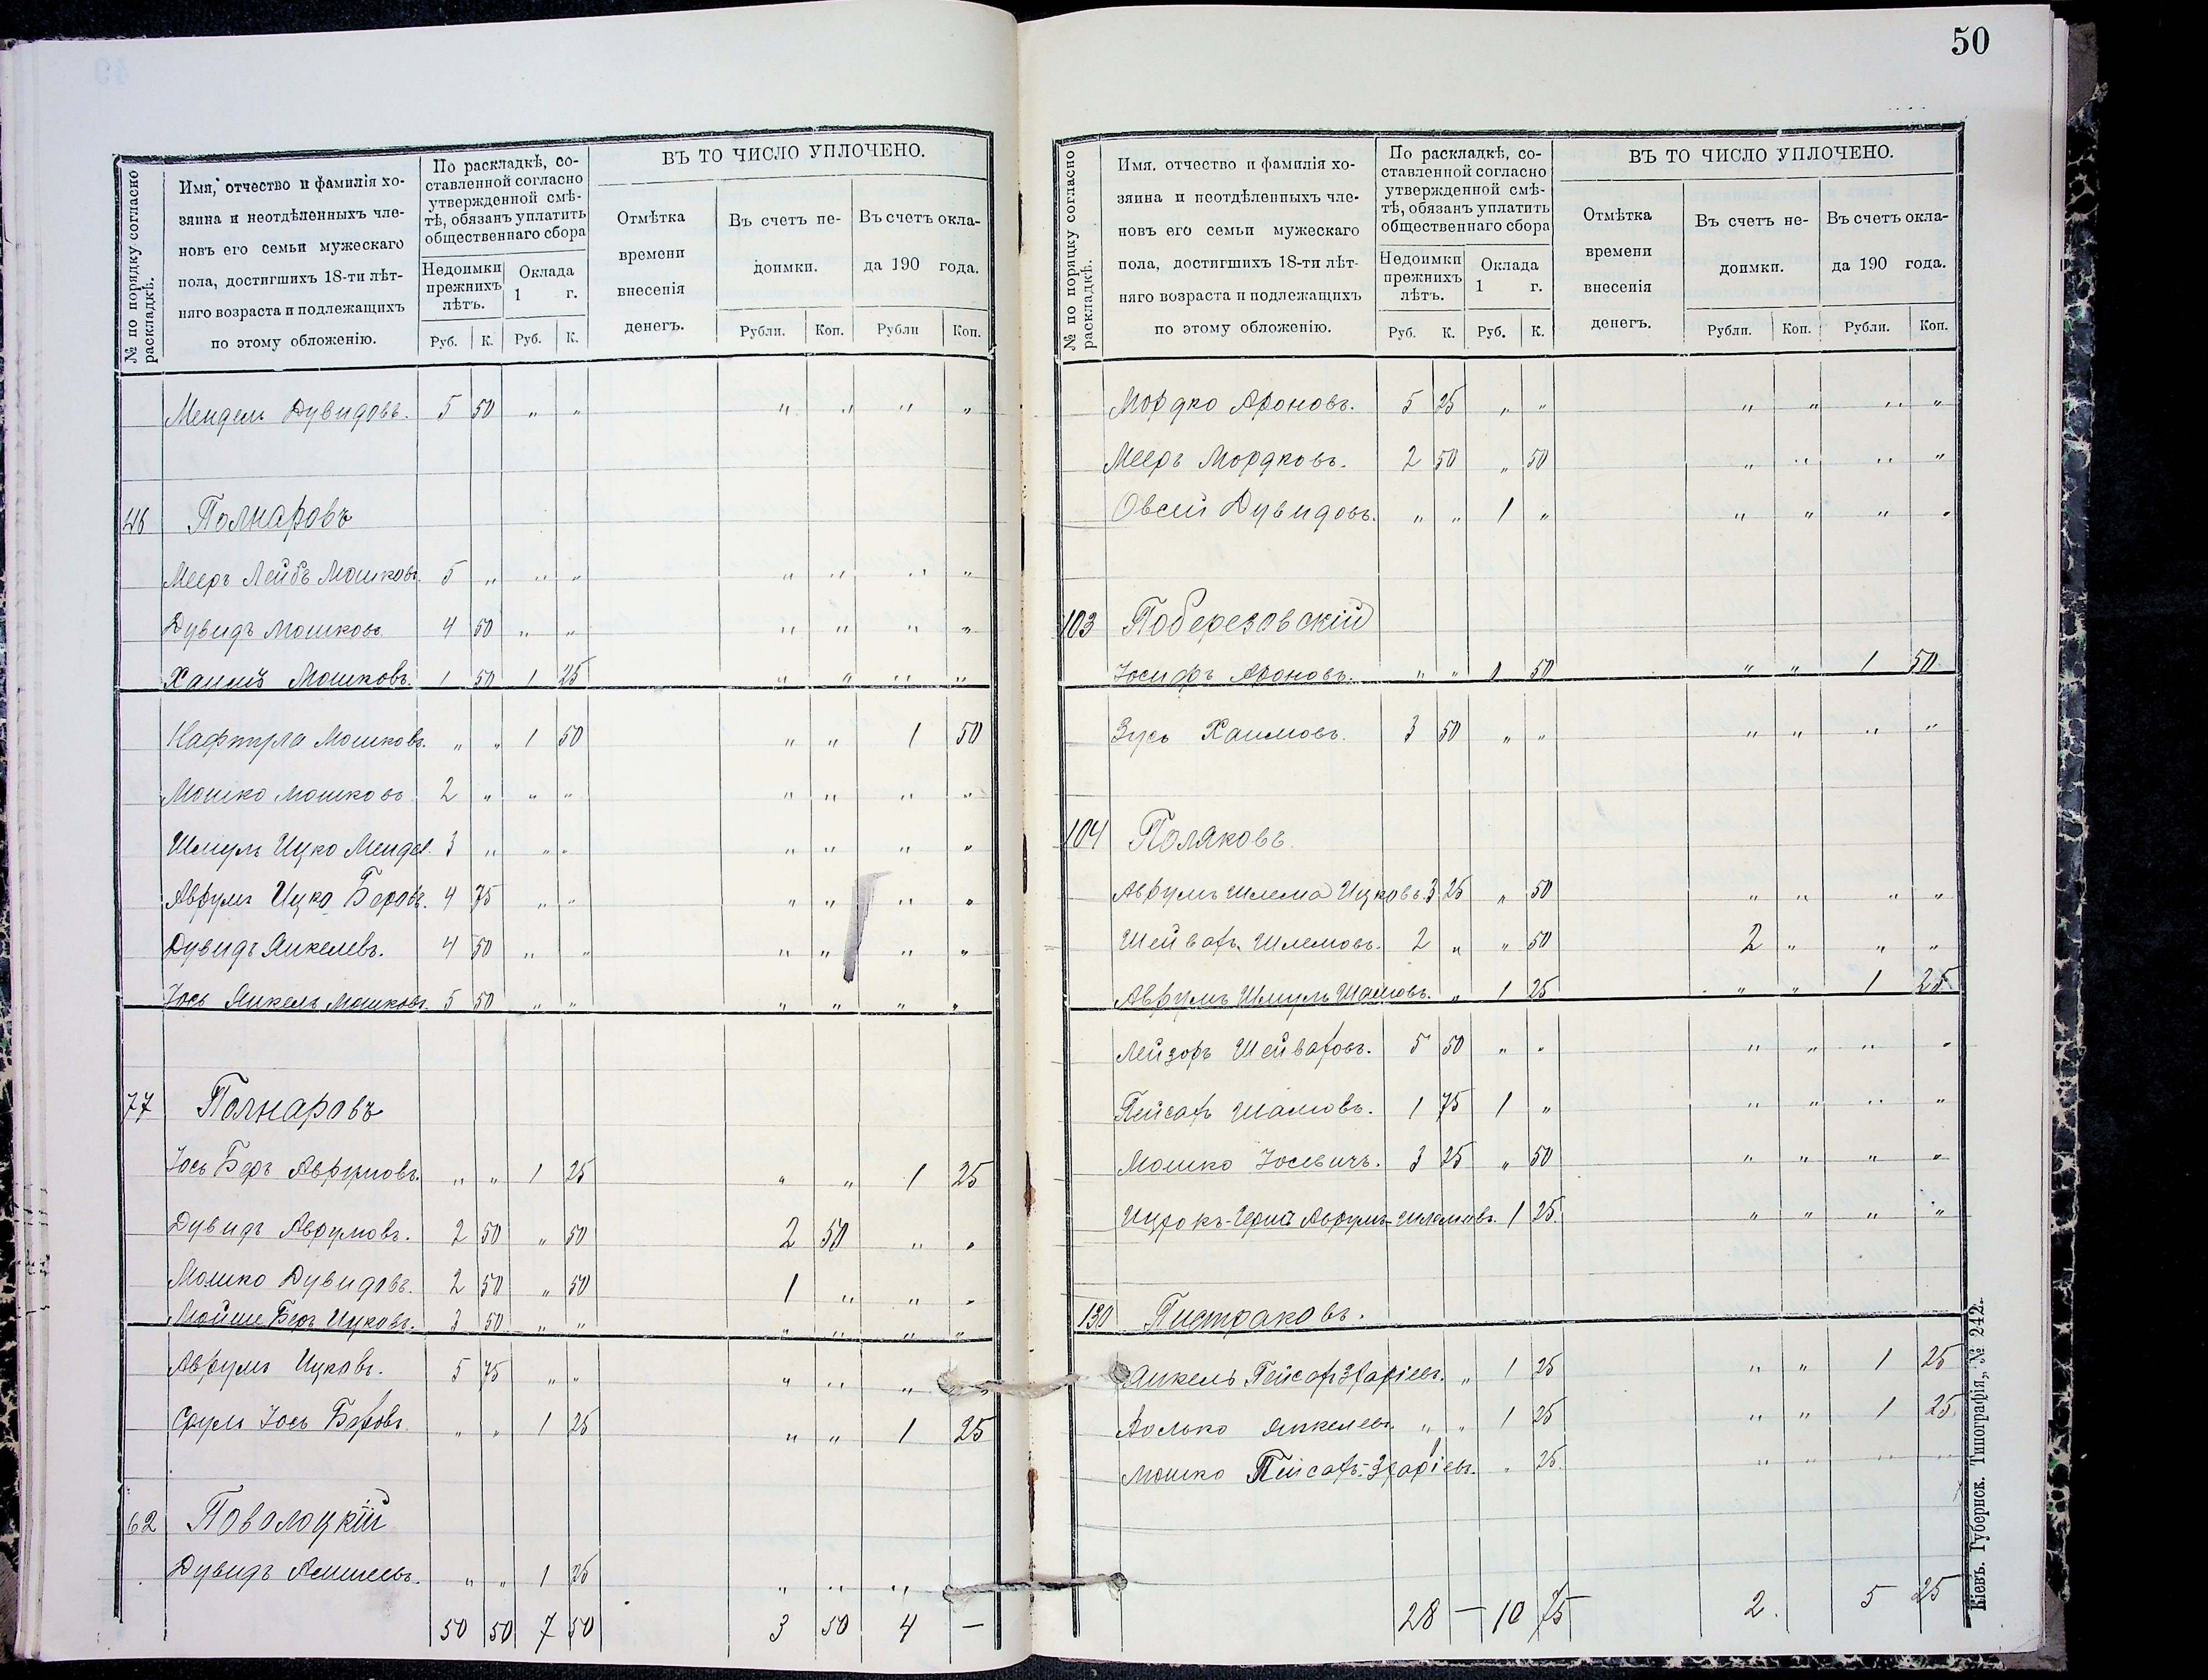 № по порядку согласно раскладкѣ.
Имя, отчество и фамилія хо-
зяина и неотдѣленныхъ чле-
новъ его семьи мужескаго
пола, достигшихъ 18-ти лѣт-
няго возраста и подлежащихъ
по этому обложенію.
По раскладкѣ, со-
ставленной согласно
утвержденной смѣ-
тѣ, обязанъ уплатить
общественнаго сбора
Недоимки
прежнихъ
лѣтъ.
Оклада
1 г.
Руб. К. Руб. К.
ВЪ ТО ЧИСЛО УПЛОЧЕНО.
Отмѣтка
времени
внесенія
денегъ.
Въ счетъ не-
доимки.
Въ счетъ окла-
да 190 года.
Рубли. Коп. Рубли Коп.
Мендель Дувидовъ. 5 50 „ „ „ „ „ „
46 Полнаровъ
Мееръ Лейбъ Мошковъ. 5 „ „ „ „ „ „ „
Дувидъ Мошковъ 4 50 „ „ „ „ „ „
Хаимъ Мошковъ. 1 50 1 25 „ „ „ „
Нафтула Мошковъ. „ „ 1 50 „ „ 1 50
Мошко Мошковъ 2 „ „ „ „ „ „ „
Шмуль Ицко Мендел. 3 „ „ „ „ „ „ „
Аврумъ Ицко Беровъ. 4 75 „ „ „ „ „ „
Дувидъ Янкелевъ. 4 50 „ „ „ „ „ „
Іось Янкель Мошковъ. 5 50 „ „ „ „ „ „
77 Полнаровъ
Іось Беръ Аврумовъ. „ „ 1 25 „ „ 1 25
Дувидъ Аврумовъ. 2 50 „ 50 2 50 „ „
Мошко Дувидовъ. 2 50 „ 50 1 „ „ „
Мойше Беръ Ицковъ. 3 50 „ „ „ „ „ „
Аврумъ Ицковъ. 5 75 „ „ „ „ „ „
Сруль Іось Беровъ. „ „ 1 25 „ „ 1 25
62 Поволоцкій
Дувидъ „ „ 1 25 „ „ „ „
50 50 7 50 3 50 4 —
50
№ по порядку согласно раскладкѣ.
Имя, отчество и фамилія хо-
зяина и неотдѣленныхъ чле-
новъ его семьи мужескаго
пола, достигшихъ 18-ти лѣт-
няго возраста и подлежащихъ
по этому обложенію.
По раскладкѣ, со-
ставленной согласно
утвержденной смѣ-
тѣ, обязанъ уплатить
общественнаго сбора
Недоимки
прежнихъ
лѣтъ.
Оклада
1 г.
Руб. К. Руб. К.
ВЪ ТО ЧИСЛО УПЛОЧЕНО.
Отмѣтка
времени
внесенія
денегъ.
Въ счетъ не-
доимки.
Въ счетъ окла-
да 190 года.
Рубли. Коп. Рубли. Коп.
Мордко Ароновъ. 5 25 „ „ „ „ „ „
Мееръ Мордковъ. 2 50 „ 50 „ „ „ „
Овсей Дувидовъ. „ „ 1 „ „ „ „ „
103 Поберезовскій
Іосифъ Ароновъ. „ „ 1 50 „ „ 1 50
Зусь Хаимовъ. 3 50 „ „ „ „ „ „
104 Поляковъ
Аврумъ Шлема Ицковъ. 3 25 „ 50 „ „ „ „
Шейвахъ Шлемовъ. 2 „ „ 50 2 „ „ „
Аврумъ Шмуль Шамовъ. „ 1 25 „ „ 1 25
Лейзоръ Шейваховъ. 5 50 „ „ „ „ „ „
Пейсахъ Шамовъ. 1 75 1 „ „ „ „ „
Мошко Іосевичъ. 3 25 „ 50 „ „ „ „
Ицрокъ-Герш Аврумъ-Шлемовъ. 1 25. „ „ „ „
130 Пистраковъ.
Янкель Пейсах „ 1 25 „ „ 1 25
Волько Янкелевъ. „ „ 1 25 „ „ 1 25
Мошко Пейсахъ 1 „ 25. „ „ „ „
28 — 10 75 2. 5 25
Кіевъ. Губернск. Типографія, № 242.